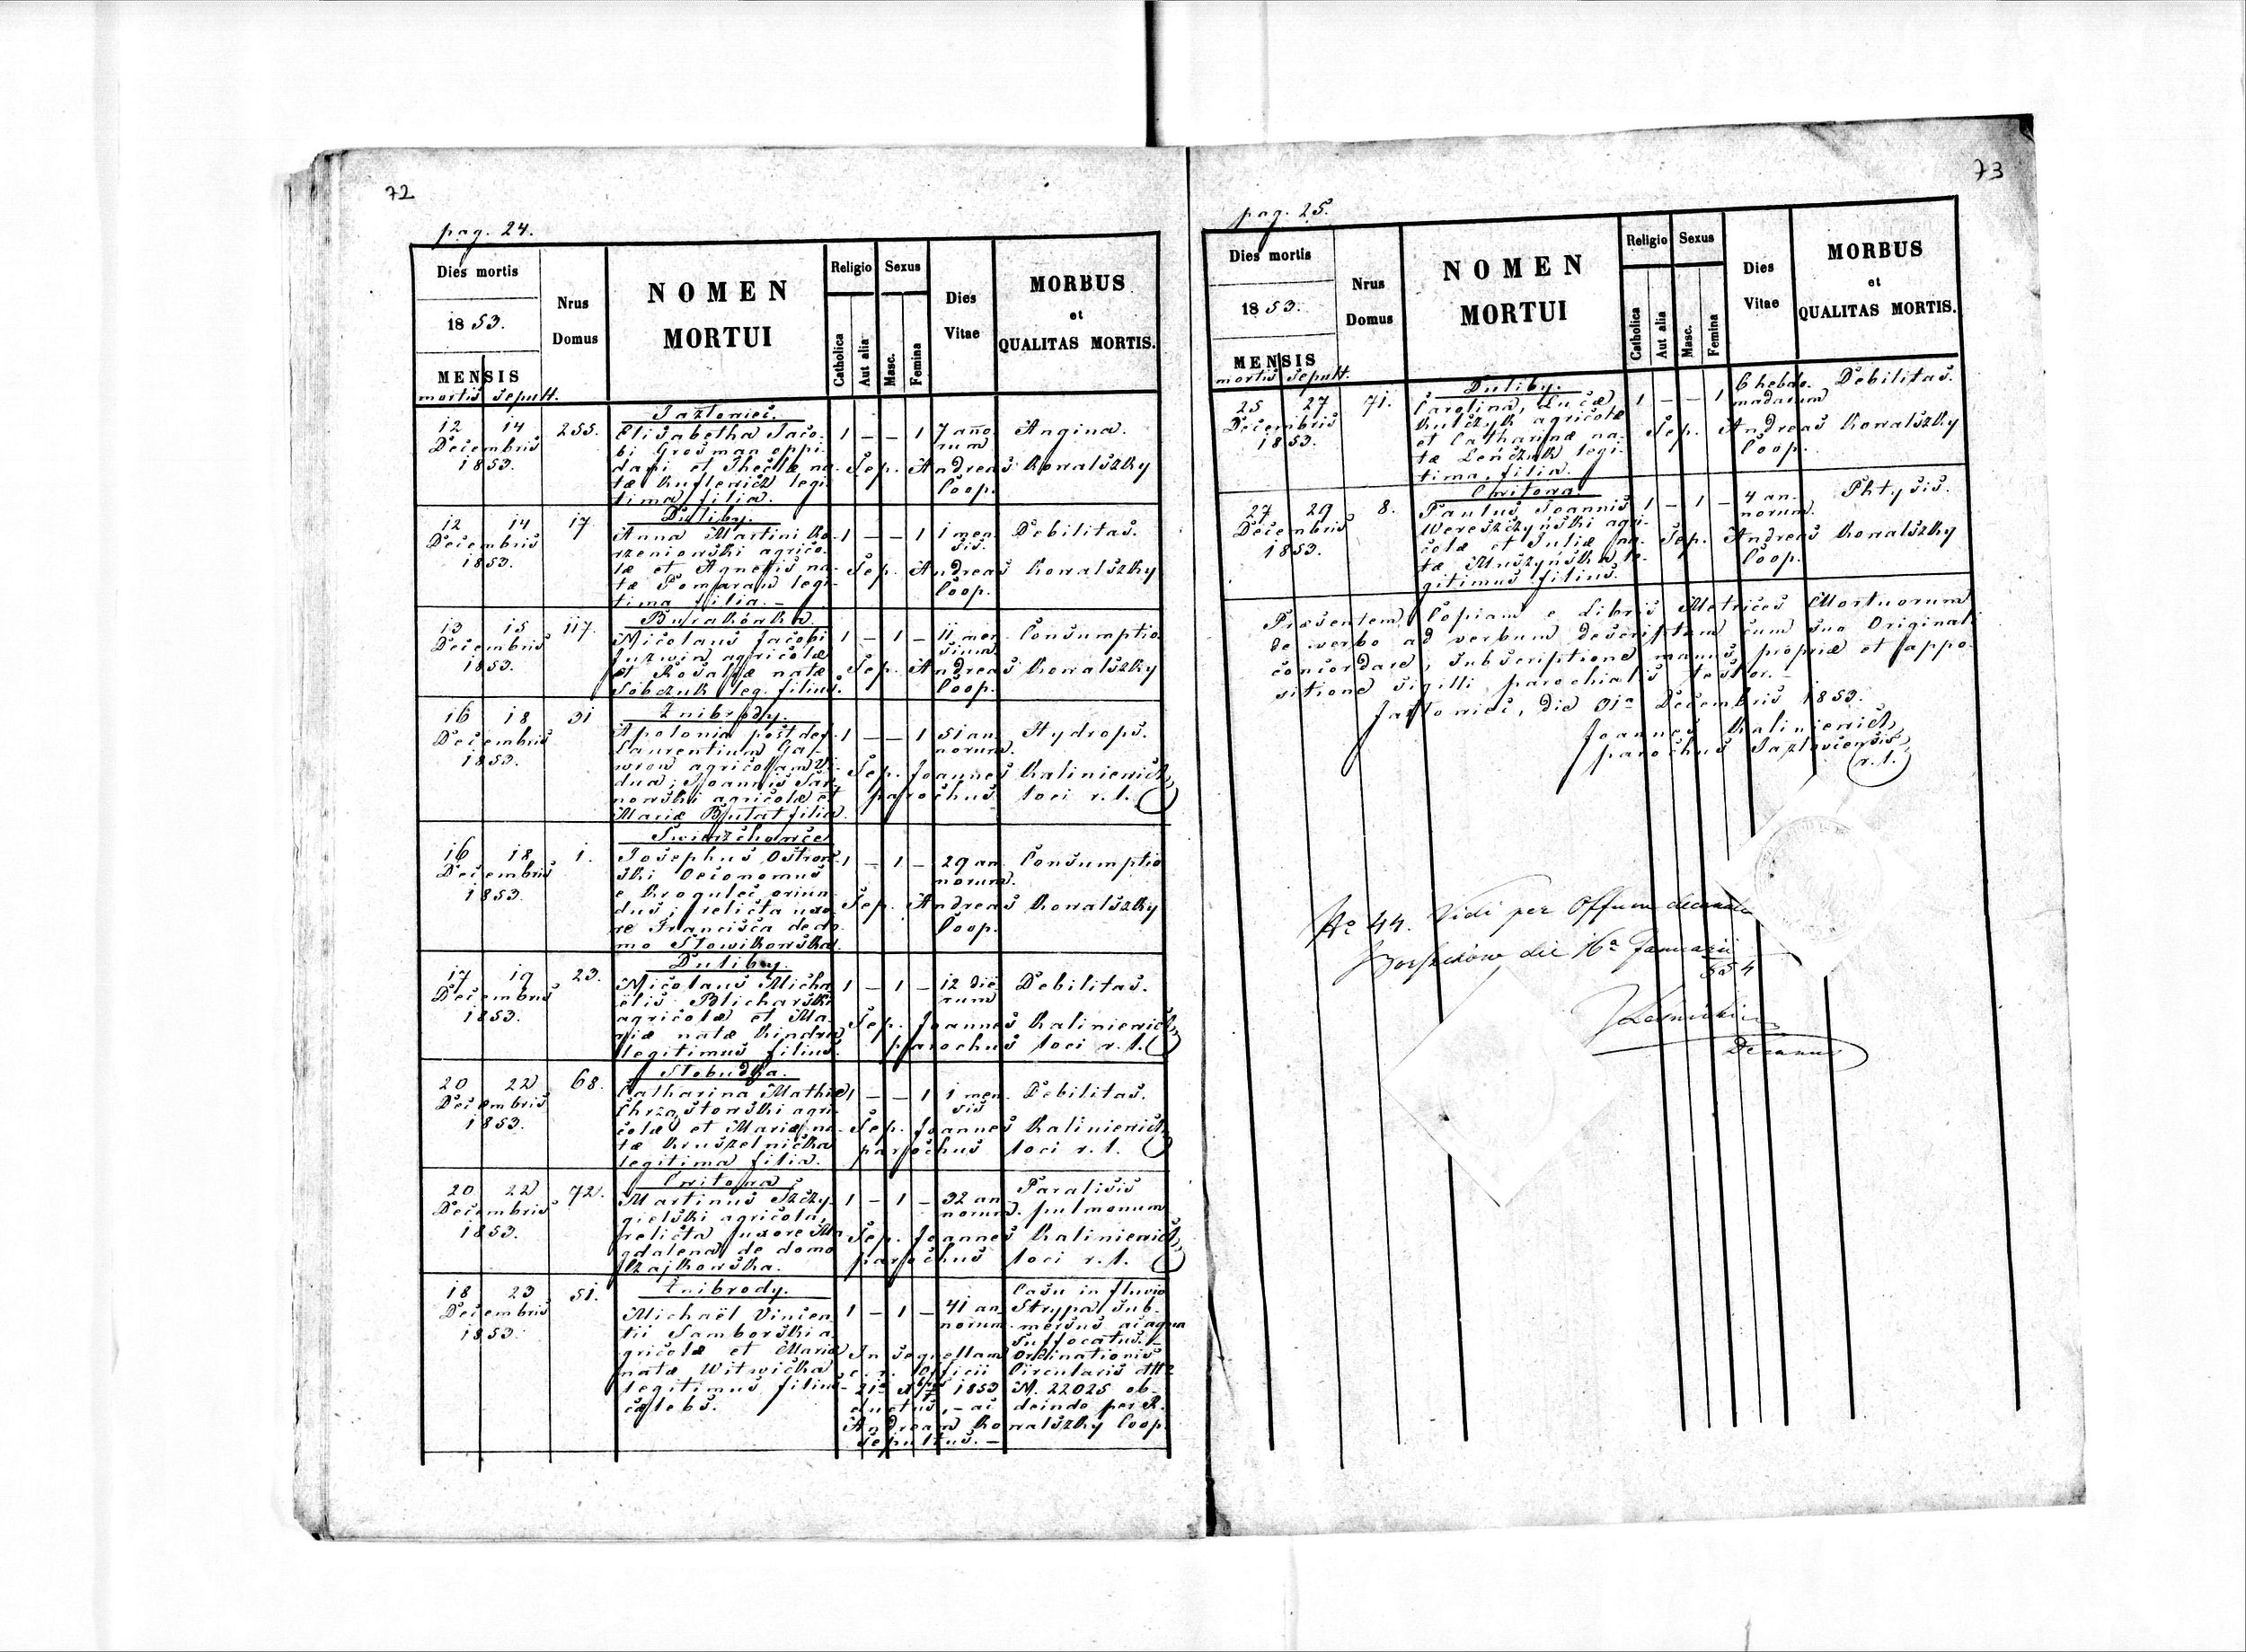 72
pag. 24.
Dies mortis
1853.
MENSIS
mortis Sepult.
Nrus
Domus
NOMEN
MORTUI
Religio
Catholica
Aut alia
Sexus
Masc.
Femina
Dies
Vitae
MORBUS
et
QUALITAS MORTIS.
12 14
Decembris
1853.
255.
Jazłoviec.
Elisabetha Jaco-
bi Grosman oppi-
dani et Theclæ na-
tæ legi-
tima filia.
1 — — 1
7 año-
rum
Angina.
Sep. Andreas Kowalszky
Coop.
12 14
Decembris
1853.
17.
Duliby.
Anna Martini Ko-
rzeniowski agrico-
læ et Agnetis na-
tæ Pomaran legi-
tima filia. —
1 — — 1
1 men-
sis.
Debilitas.
Sep. Andreas Kowalszky
Coop.
13 15
Decembris
1853.
117.
Burakówka.
Nicolaus Jacobi
agricolæ
et Rosaliæ natæ
Sobczuk leg. filius.
1 — 1 —
11 men-
sium.
Consumptio
Sep. Andreas Kowalszky
Coop.
16 18
Decembris
1853.
31
Znibrody.
Apolonia post def.
Laurentium Ga-
wron agricolam Vi-
dua; Joannis Sar-
nowski agricolæ et
Mariæ Butat filia.
1 — — 1
51 an-
norum.
Hydrops.
Sep. Joannes Kaliniewicz,
parochus loci r. l.
16 18
Decembris
1853.
1.
Josephus Ostrow-
ski Oeconomus
e Kroguleć oriun-
dus; relicta uxo-
re Francisca de do-
mo Słowikowska.
1 — 1 —
29 an-
norum.
Consumptio
Sep. Andreas Kowalszky
Coop.
17 19
Decembris
1853.
23.
Duliby.
Nicolaus Micha-
ëlis Blicharski
agricolæ et Ma-
riæ natæ Kindra
legitimus filius.
1 — 1 —
12 die-
rum
Debilitas.
Sep. Joannes Kaliniewicz,
parochus loci r. l.
20 22
Decembris
1853.
68.
Słobudka.
Catharina Mathiæ
Chrząstowski agri-
colæ et Mariæ na-
tæ Kruszelnicka
legitima filia.
1 — — 1
1 men-
sis
Debilitas.
Sep. Joannes Kaliniewicz,
parochus loci r. l.
20 22
Decembris
1853.
72.
Cwitowa.
Martinus Szczy-
gielski agricola,
relicta uxore Ma-
gdalena de domo
Czajkowska.
1 — 1 —
32 an-
norum.
Paralisis
pulmonum
Sep. Joannes Kaliniewicz,
parochus loci r. l.
18 23
Decembris
1853.
51.
Znibrody.
Michaël Vincen-
tii Samborski a-
gricolæ et Mariæ
natæ Witwicka
legitimus filius
cælebs.
1 — 1 —
41 an-
norum.
Casu in fluvio
Strypa sub-
mersus ac aqua
suffocatus. —
In sequellam ordinationis
c. r. Officii Circularis dtto
21 1853 N. 22025 ob-
ductus, — ac deinde per R.
Andream Kowalszky Coop.
sepultus. —
73
pag. 25.
Dies mortis
1853.
MENSIS
mortis Sepult.
Nrus
Domus
NOMEN
MORTUI
Religio
Catholica
Aut alia
Sexus
Masc.
Femina
Dies
Vitae
MORBUS
et
QUALITAS MORTIS.
25 27
Decembris
1853.
71.
Duliby.
Carolina, Lucæ
Kulczyk agricolæ
et Catharinæ na-
tæ Leńczuk legi-
tima filia.
1 — — 1
6 hebdo-
madarum
Debilitas.
Sep. Andreas Kowalszky
Coop.
27 29
Decembris
1853.
8.
Cwitowa.
Paulus Joannis
Wereszczyński agri-
colæ et Juliæ na-
tæ Muszyńska le-
gitimus filius.
1 — 1 —
4 an-
norum.
Phtysis.
Sep. Andreas Kowalszky
Coop.
Præsentem Copiam e Libris Metrices Mortuorum
de verbo ad verbum descriptam cum suo Originali
concordare, subscriptione manus propriæ et appo-
sitione sigilli parochialis testor. —
Jazłowiec, die 31a Decembris 1853.
Joannes Kaliniewicz,
parochus Jazłoviensis
r. l.
No 44. Vidi per Offum decanale
die 16a Januarii
854
Decanus